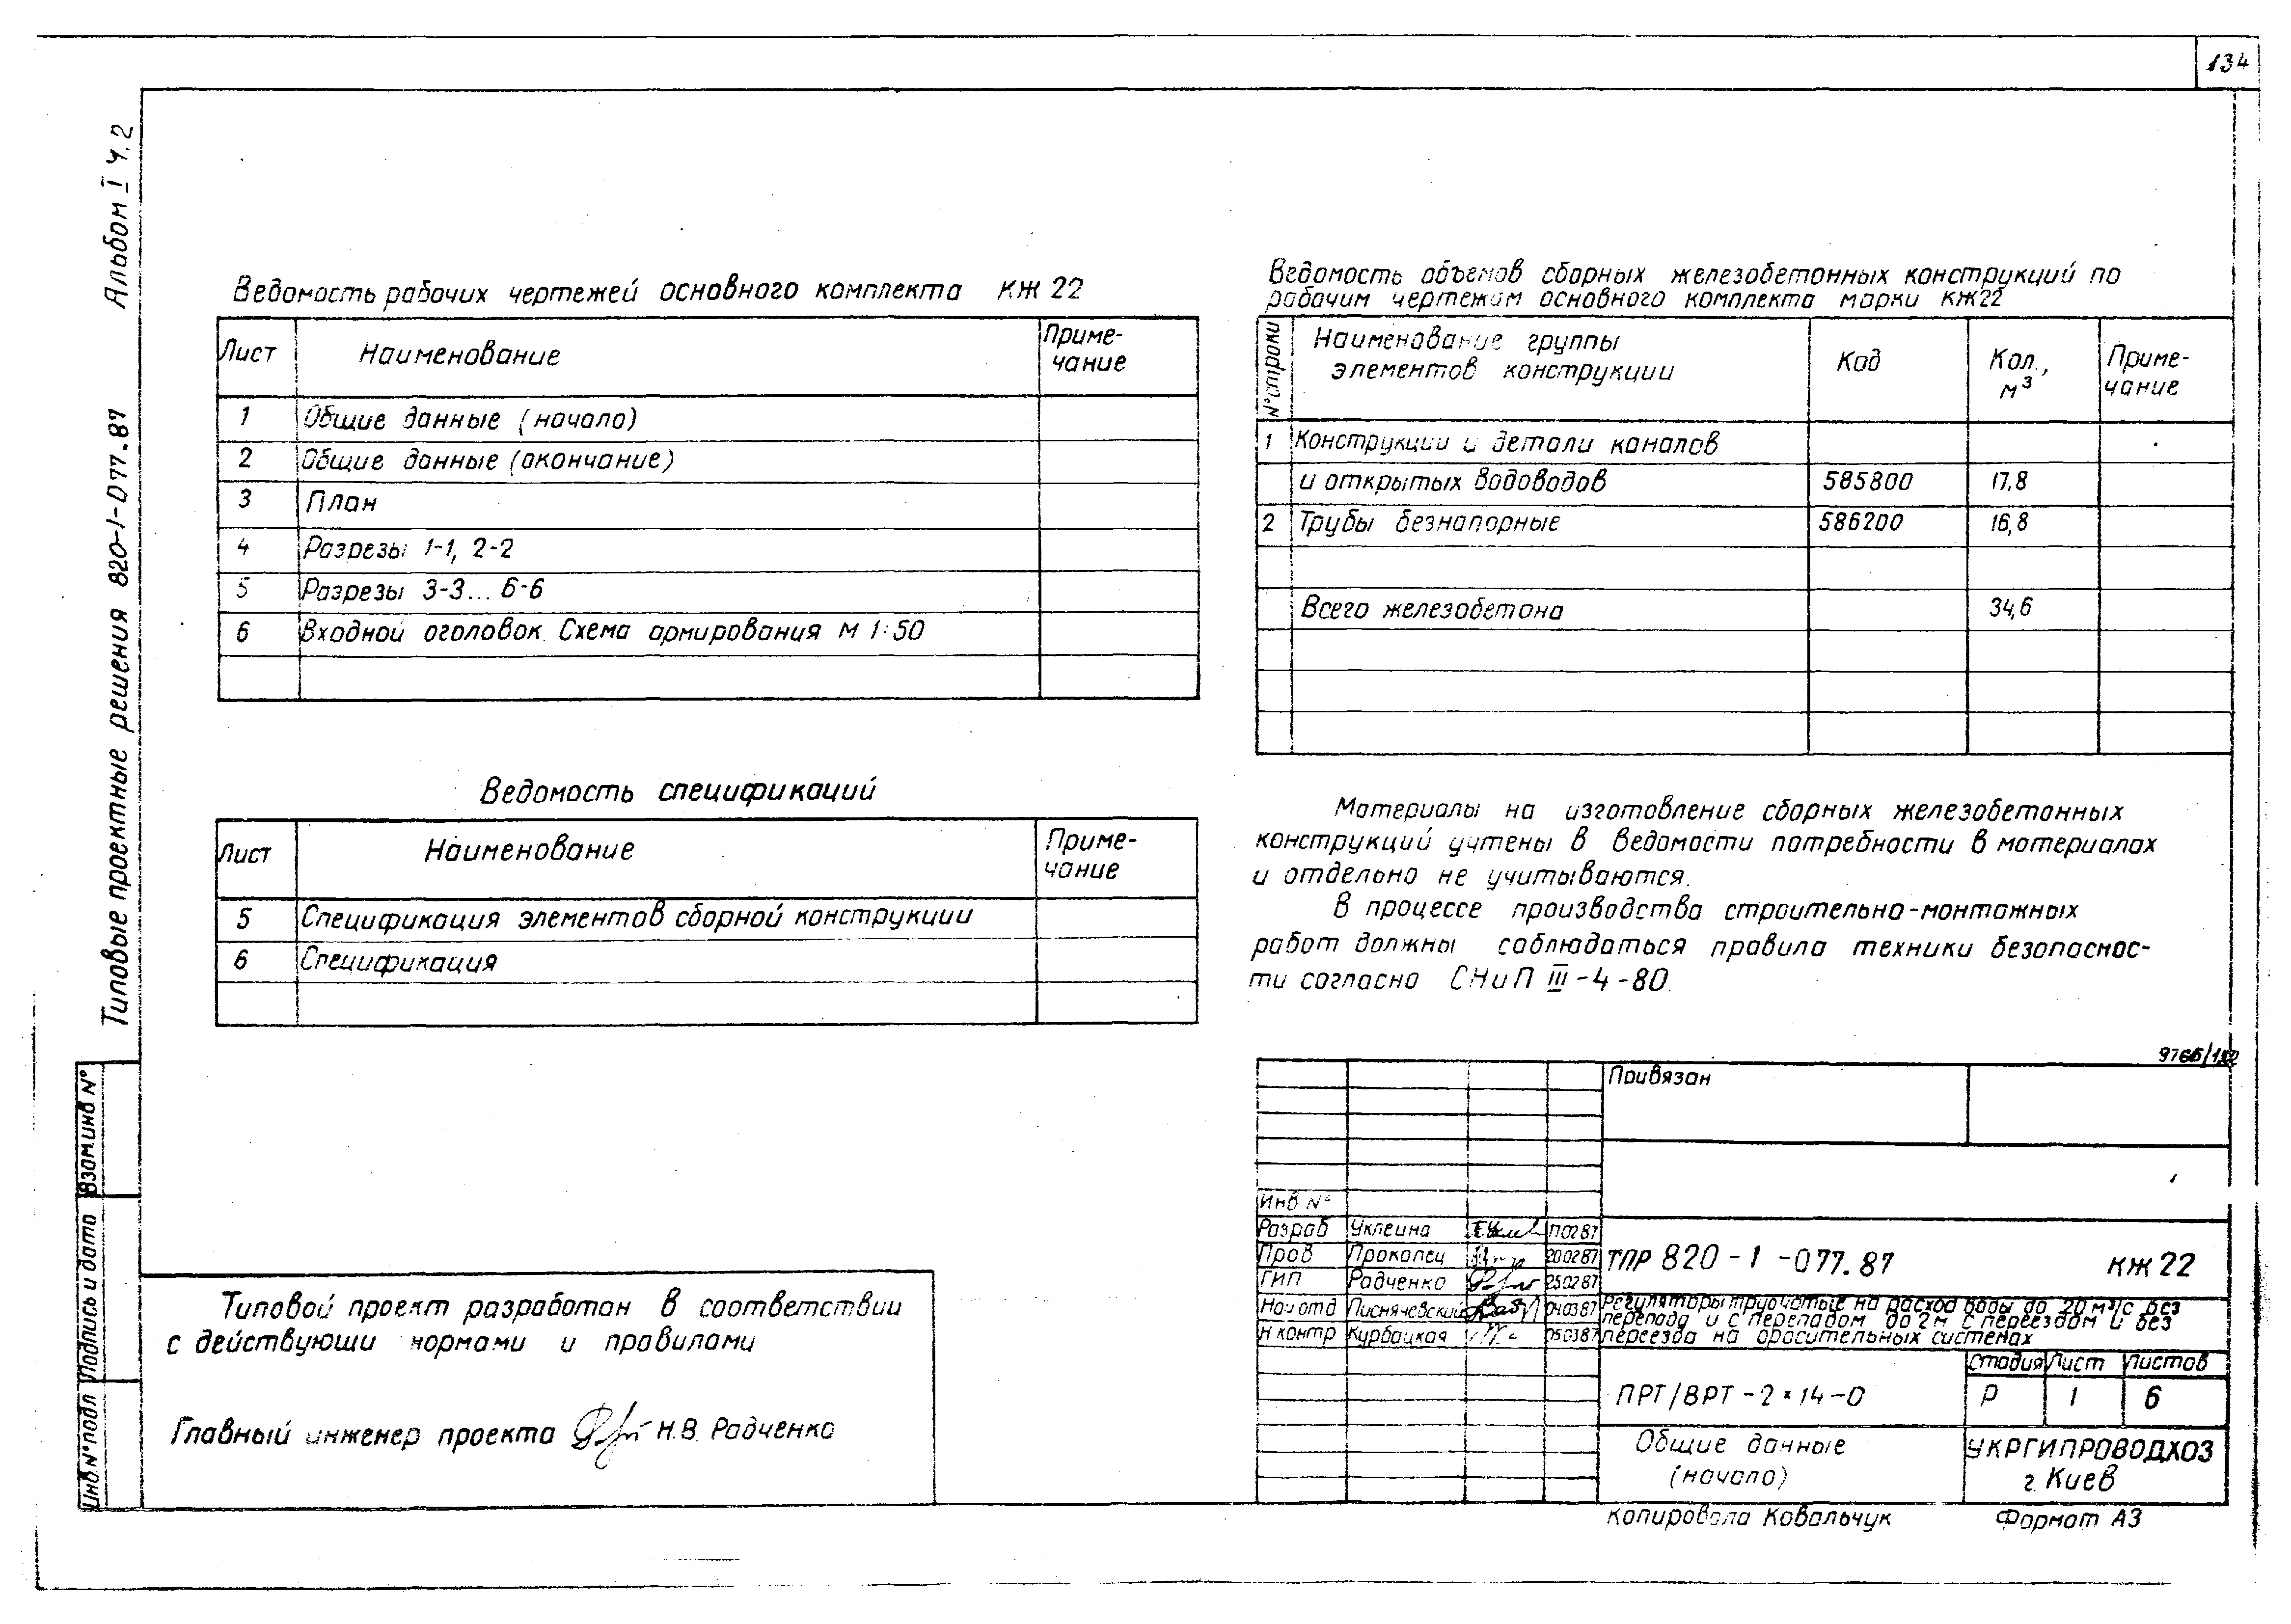 134
Альбом I ч.2
Типовые проектные решения 820-1-077.87
Ведомость рабочих чертежей основного комплекта КЖ 22
Лист Наименование Приме-
чание
1 Общие данные (начало)
2 Общие данные (окончание)
3 План
4 Разрезы 1-1, 2-2
5 Разрезы 3-3... 6-6
6 Входной оголовок. Схема армирования М 1:50
Ведомость спецификаций
Лист Наименование Приме-
чание
5 Спецификация элементов сборной конструкции
6 Спецификация
Ведомость объемов сборных железобетонных конструкций по
рабочим чертежам основного комплекта марки КЖ22
N° строки Наименование группы
элементов конструкции Код Кол., м³ Приме-
чание
1 Конструкции и детали каналов
и открытых водоводов 585800 17,8
2 Трубы безнапорные 586200 16,8
Всего железобетона 34,6
Материалы на изготовление сборных железобетонных
конструкций учтены в ведомости потребности в материалах
и отдельно не учитываются.
В процессе производства строительно-монтажных
работ должны соблюдаться правила техники безопаснос-
ти согласно СНиП III-4-80.
Взам.инв N°
Подпись и дата
Инв.N° подл
Типовой проект разработан в соответствии
с действующи нормами и правилами
Главный инженер проекта Н.В. Радченко
Привязан
Инв N°
Разраб Уклеина 110287
Пров Прокопец 200287
ГИП Радченко 250287
Нач отд Лиснячевский 040387
Н контр Курбацкая 050387
ТПР 820-1-077.87 КЖ 22
Регуляторы трубчатые на расход воды до 20м³/с без
перепада и с перепадом до 2м с переездом и без
переезда на оросительных системах
ПРТ/ВРТ-2×14-0
Стадия Лист Листов
Р 1 6
Общие данные
(начало)
УКРГИПРОВОДХОЗ
г. Киев
Копировала Ковальчук Формат А3